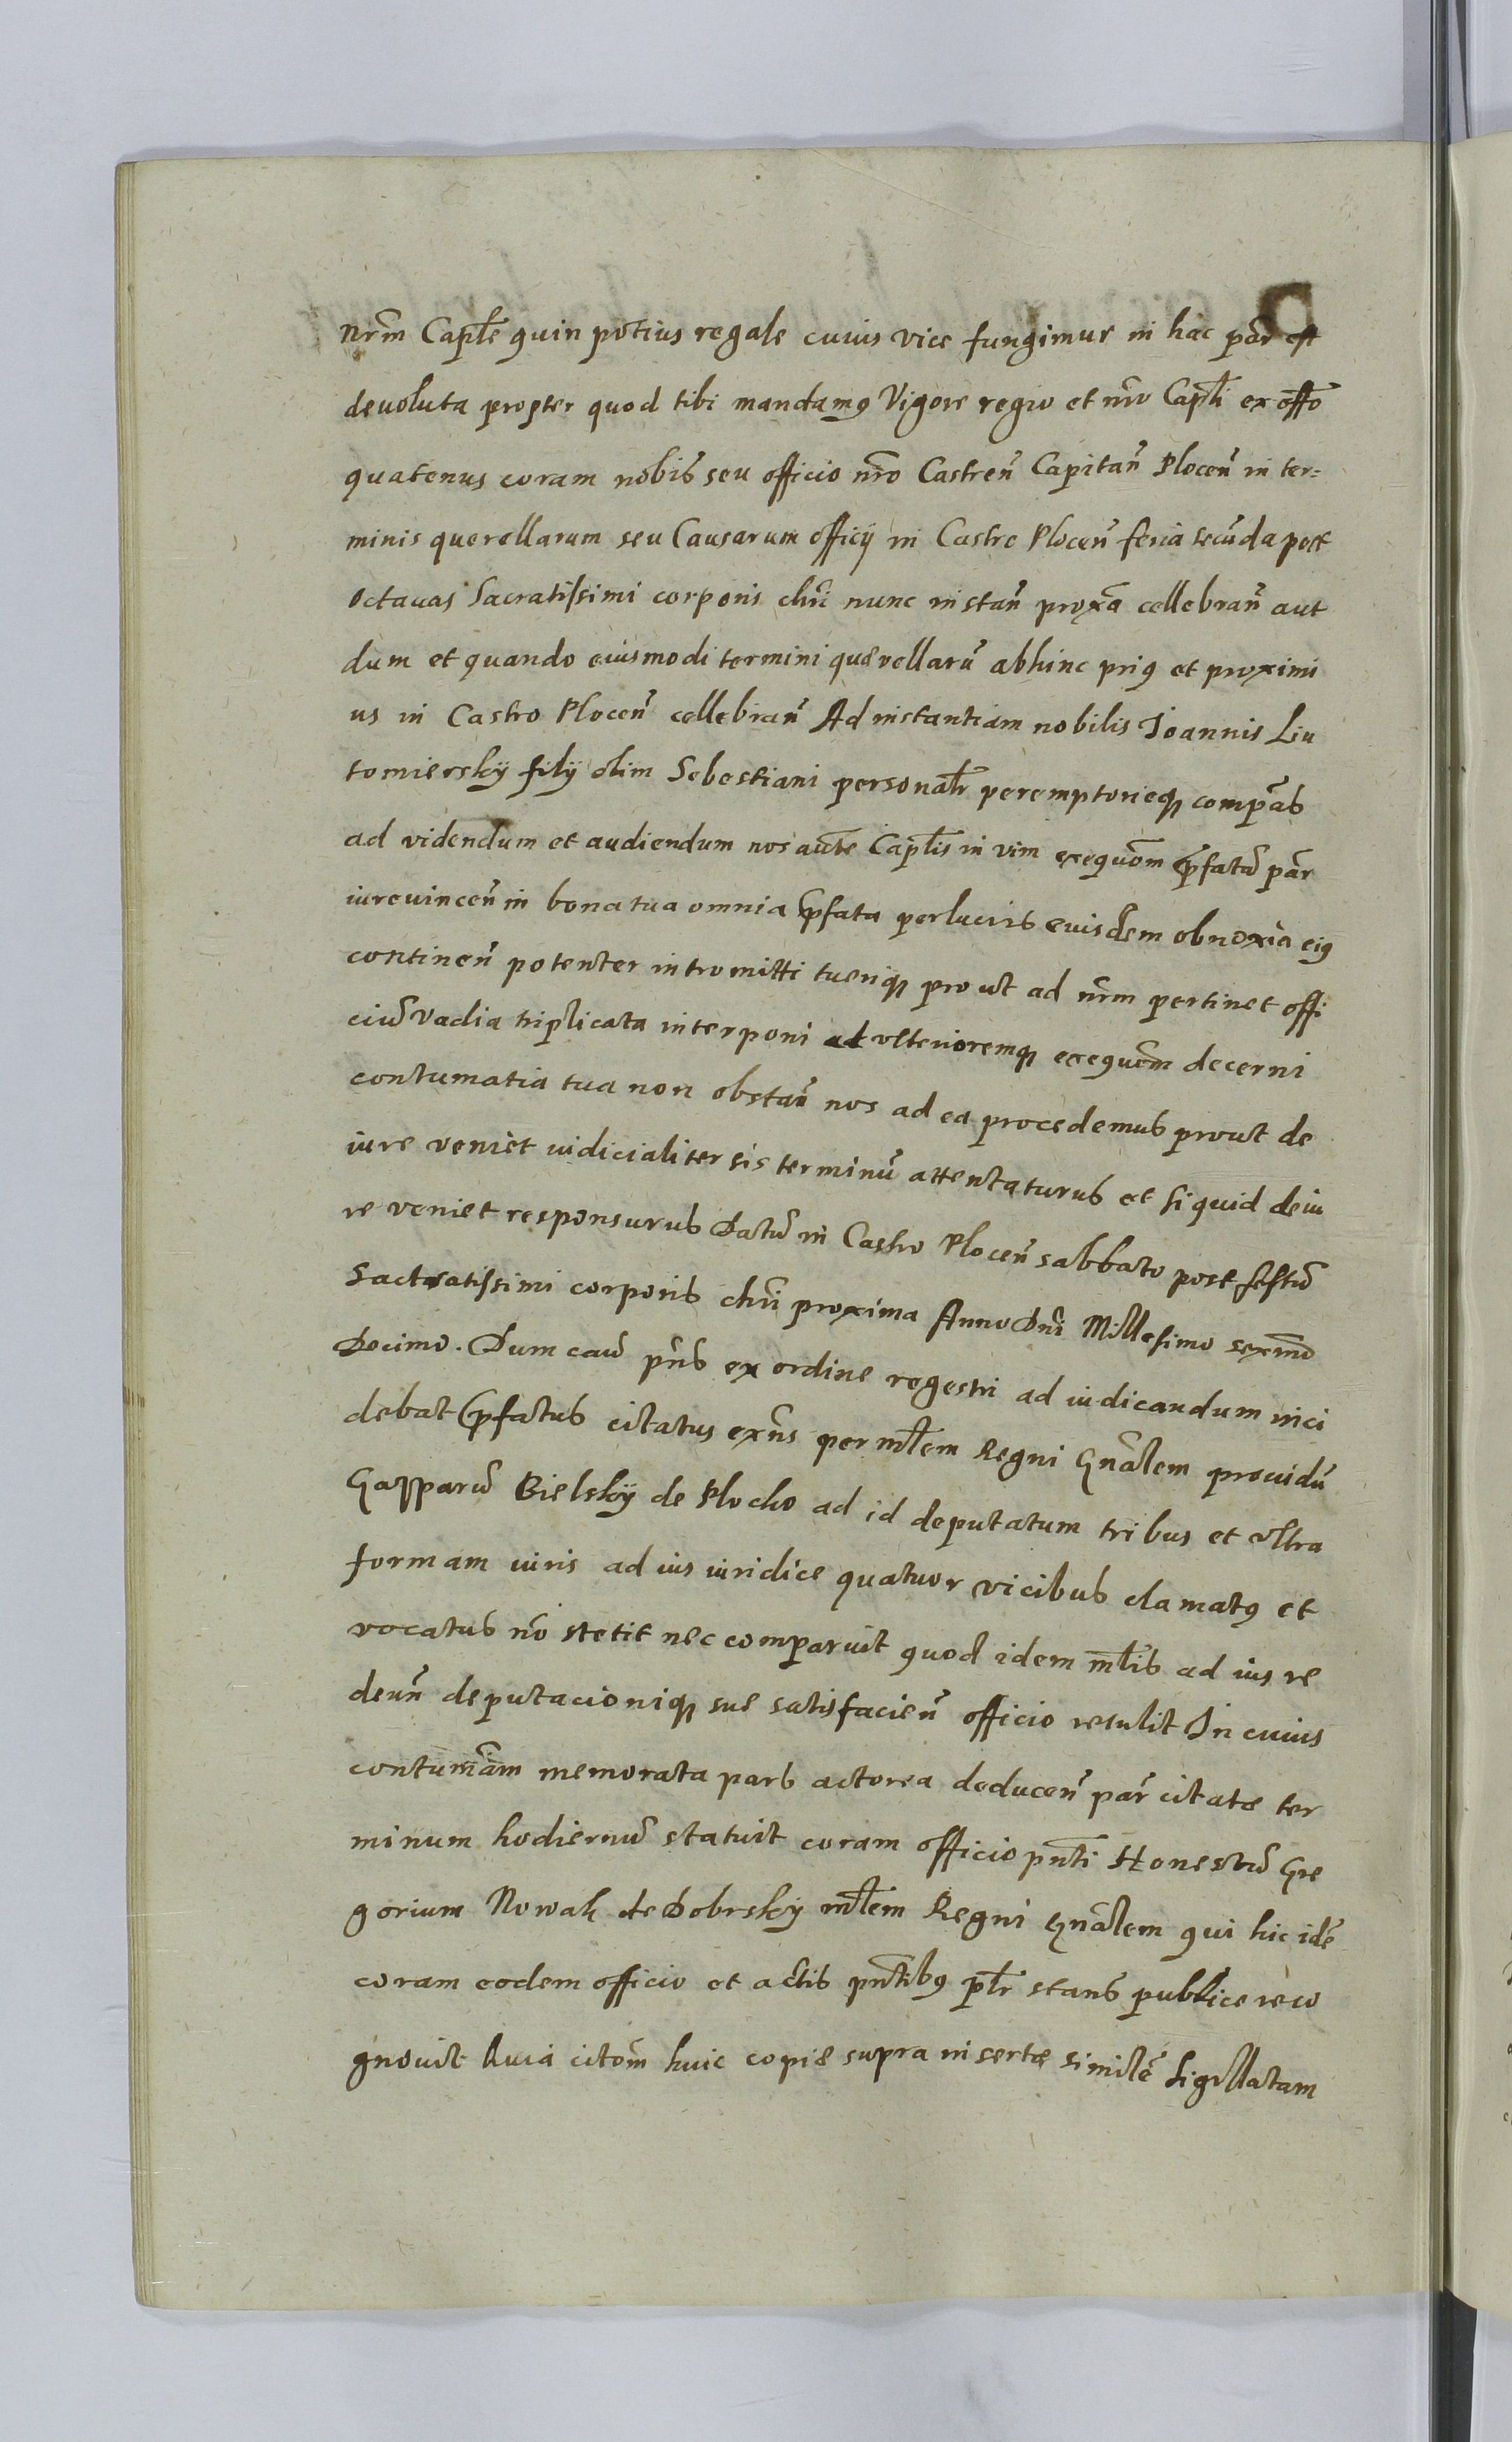 nrm Caplē quin potius regale cuius vice fungimur in hac par est
devoluta propter quod tibi mandamq vigore regio et nro Capli ex offo
quatenus coram nobis seu officio nro Castren Capitan Plocen in ter=
minis querellarum seu Causarum officÿ in Castro Plocen feria secunda post
octavas Sacratissimi corporis chri nunc instan proxa cellebran aut
dum et quando eiusmodi termini quærellarū abhinc priq et proximi
us in Castro Plocen cellebran Ad instantiam nobilis Joannis Liu
tomierskÿ filÿ olim Sebestiani personalr peremptorieq compas
ad videndum et audiendum nos aucte Caplis in vim exequom pfatā par
iurevincen in bona tua omnia pfata perlucris euisdem obnoxia eiq
continen potenter intromitti tueriq prout ad nrm pertinet offi
ciū vadia triplicata interponi ad ulterioremq exequom decerni
contumatia tua non obstan nos ad ea procedemus prout de
iure veniet iudicialiter sis terminū attentaturus et siquid deiu
re veniet responsurus Datū in Castro Plocen sabbato post festū
Sactratissimi corporis chri proxima Anno Dni Millesimo sexmo
Decimo. Dum caū pns ex ordine regestri ad iudicandum inci
debat pfatus citatus exns per mlem Regni Gnalem providū
Gasparū Bielskÿ de Plocko ad id deputatum tribus et ultra
formam iuris ad ius iuridice quatuor vicibus clamatq et
vocatus nō stetit nec comparuit quod idem mlis ad ius re
deun deputacioniq sue satisfacien officio retulit In cuius
contumam memorata pars actorea deducen par citatæ ter
minum hodiernū statuit coram officio pnti Honestū Gre
gorium Nowak de Dobrskÿ mlem Regni Gnalem qui hic idē
coram eodem officio et actis pntibq plr stans publice reco
gnovit Quia citom huic copiæ supra insertæ similē sigillatam